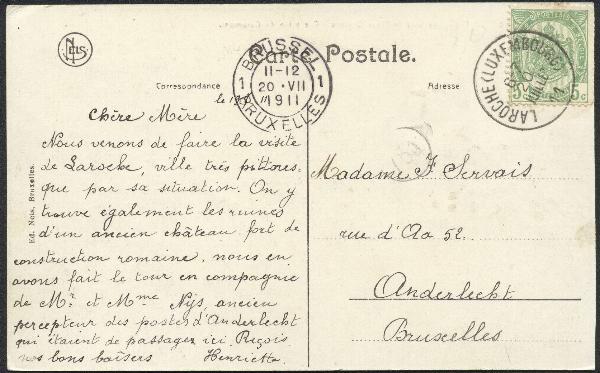 NELS
Carte Postale.
BRUSSEL
11-12
1 20 · VII 1
1911
BRUXELLES
LAROCHE (LUXEMBOURG)
5c
Correspondance
Adresse
le
Chère Mère
Nous venons de faire la visite
de Laroche, ville très pittores-
que par sa situation. On y
trouve également les ruines
d'un ancien château fort de
construction romaine, nous en
avons fait le tour en compagnie
de Mr et Mme Nijs, ancien
percepteur des postes d'Anderlecht
qui étaient de passage ici. Reçois
nos bons baisers Henriette
Madame F Servais
rue d'Aa 52.
Anderlecht
Bruxelles
Ed. Nels, Bruxelles.